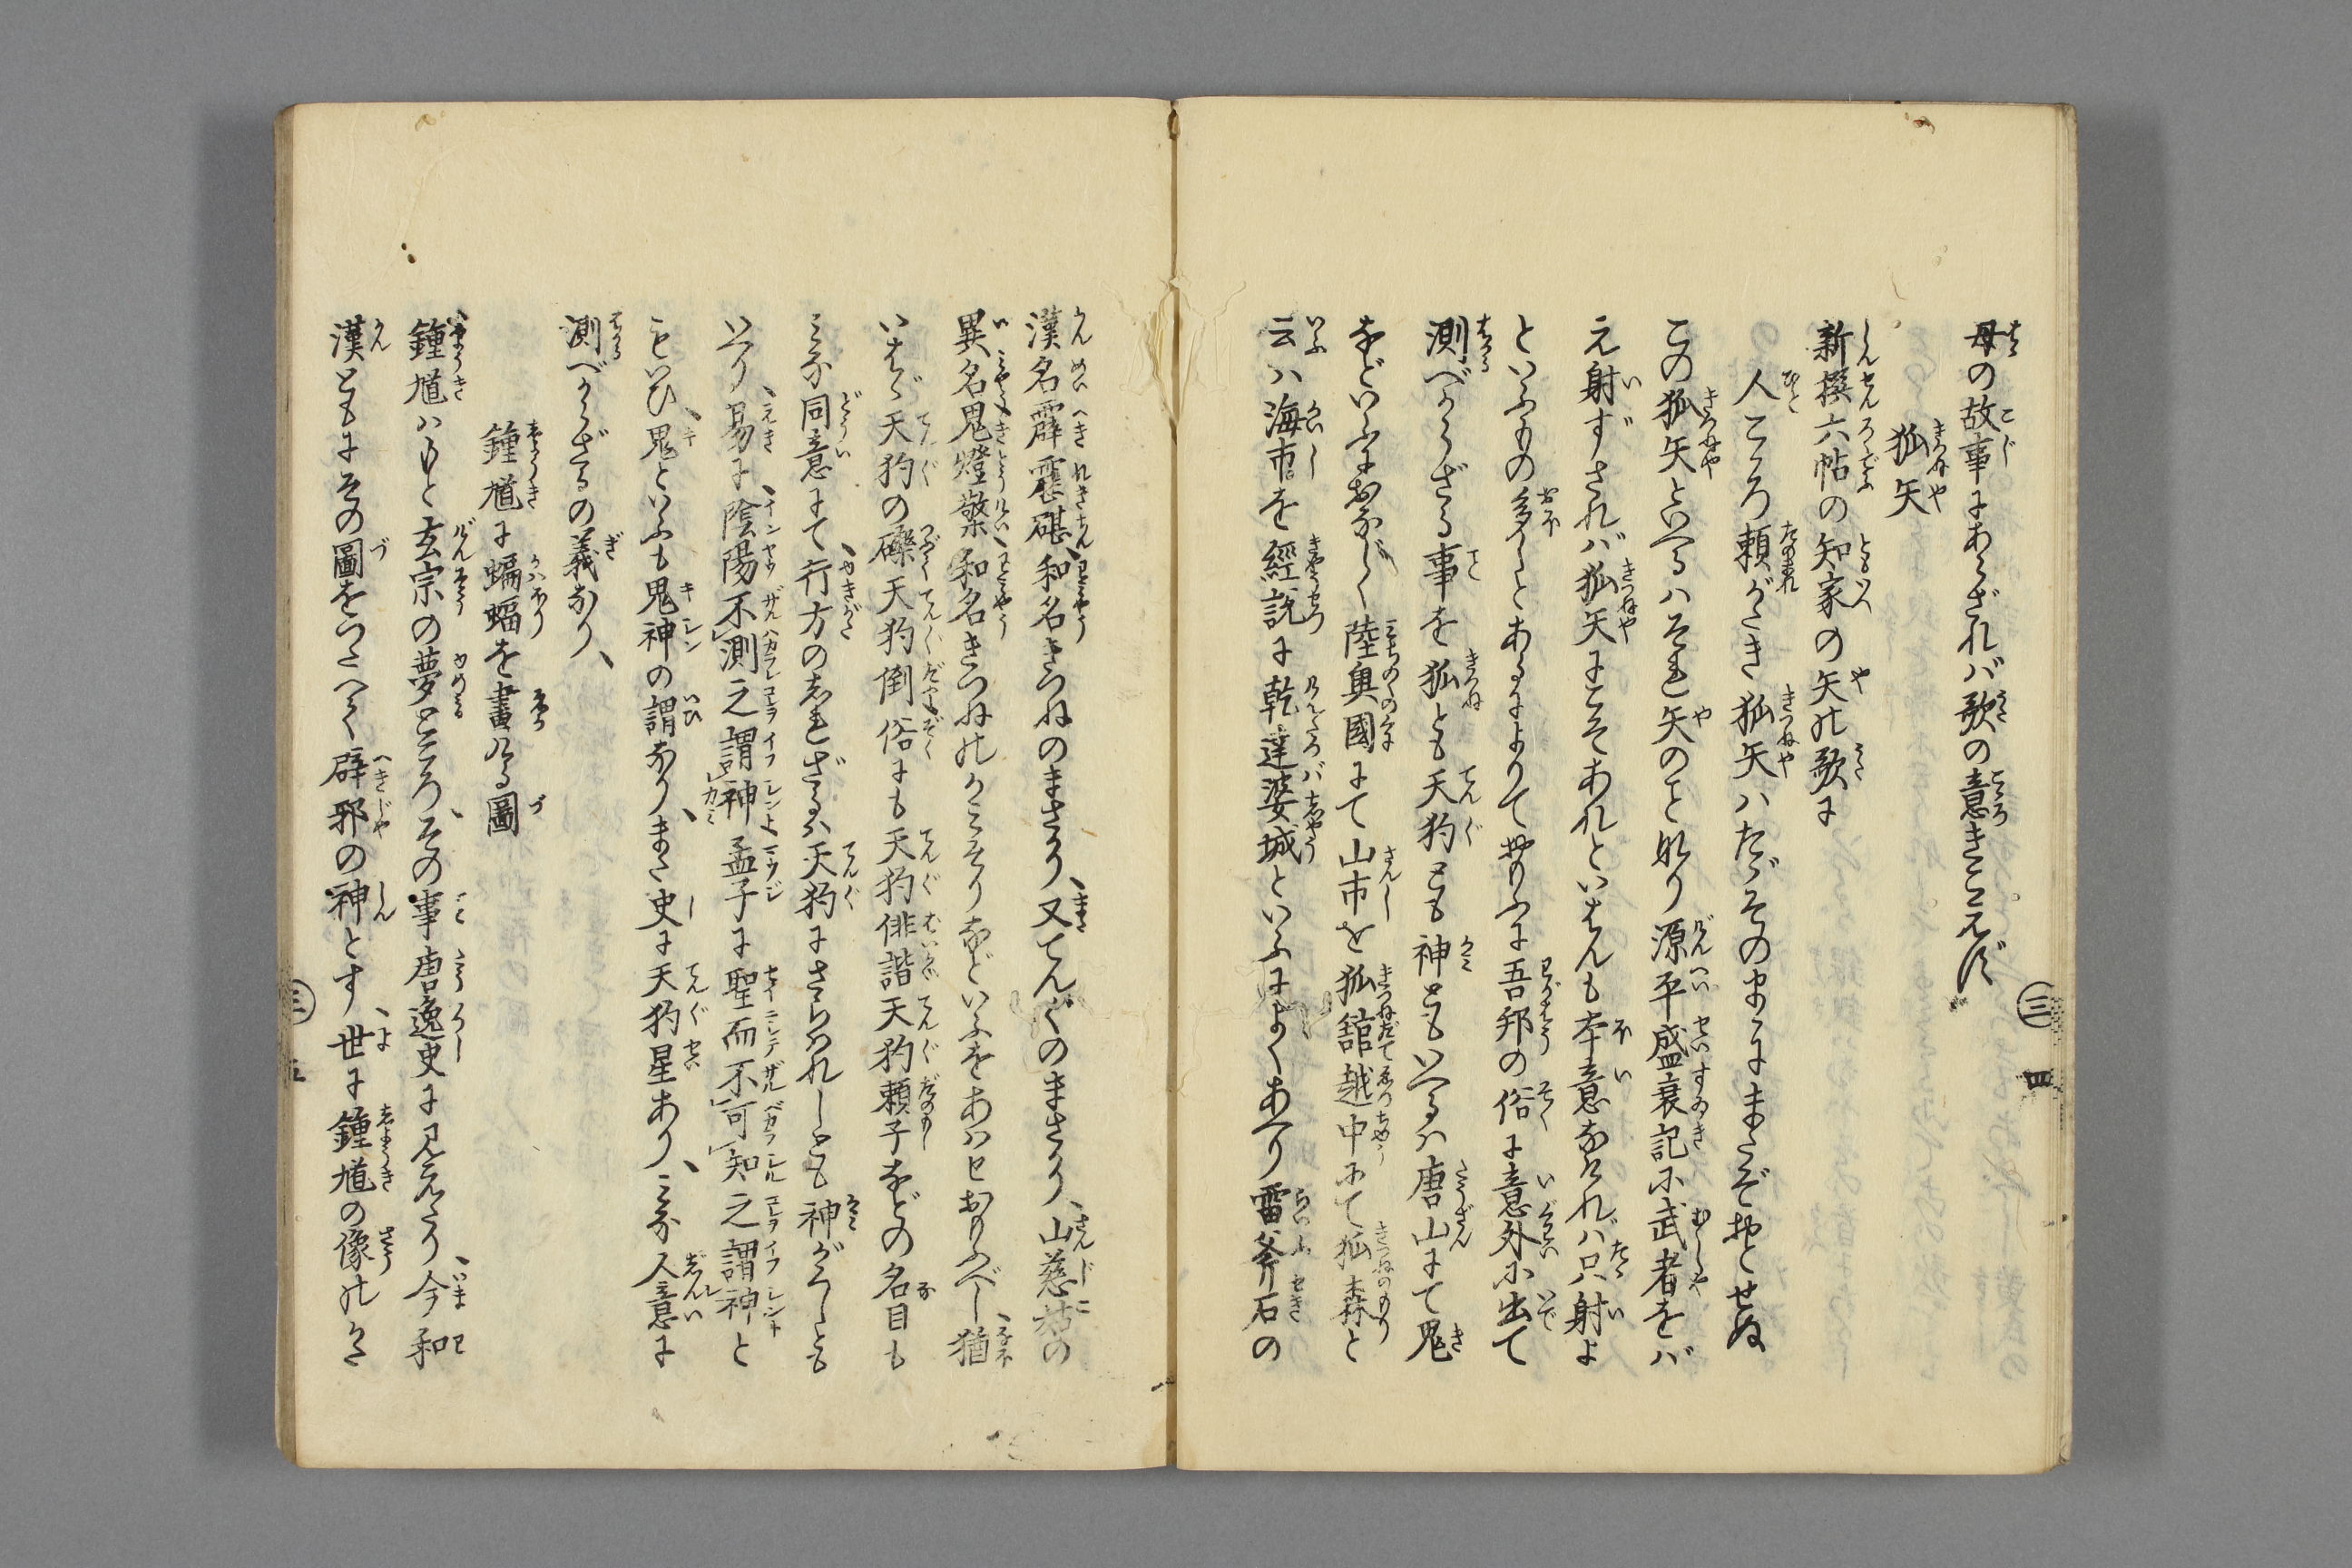 母の故事にあらざれバ歌の意きこえず
狐矢
新撰六帖の知家の矢の歌に
人こゝろ頼がたき狐矢ハたゞそのまゝにまたぞおとせぬ
この狐矢といへるハそれ矢のこと也り源平盛衰記に武者をバ
え射ずされバ狐矢にこそあれといはんも本意なけれバ只射よ
といふもの多しとあるによりておもふに吾邦の俗に意外に出て
測べからざる事を狐とも天狗とも神ともいへるハ唐山にて鬼
などいふにおなじく陸奥國にて山市を狐舘越中にて狐森と
云ハ海市を經説に乾達婆城といふによくあへり雷斧石の
漢名霹靂碪、和名きつねのまさかり、又てんぐのまさかり、山慈姑の
異名鬼燈檠、和名きつねのかみそりなどいふをあハせおもふべし、猶
いはゞ天狗の礫天狗倒俗にも天狗俳諧天狗頼子などの名目も
みな同意にて、行方のしれざるハ天狗にさらハれしとも神がくしとも
いへり、易に、陰陽不測之謂神、孟子に聖而不可知之謂神と
もいひ、鬼といふも鬼神の謂なり、また史に天狗星あり、みな人意に
測べからざるの義なり、
鍾馗に蝙蝠を畫ける圖
鍾馗ハもと玄宗の夢みるところ、その事唐逸史に見えたり、今和
漢ともにその圖をつたへて辟邪の神とす、世に鍾馗の像のかた
三
四
三
五